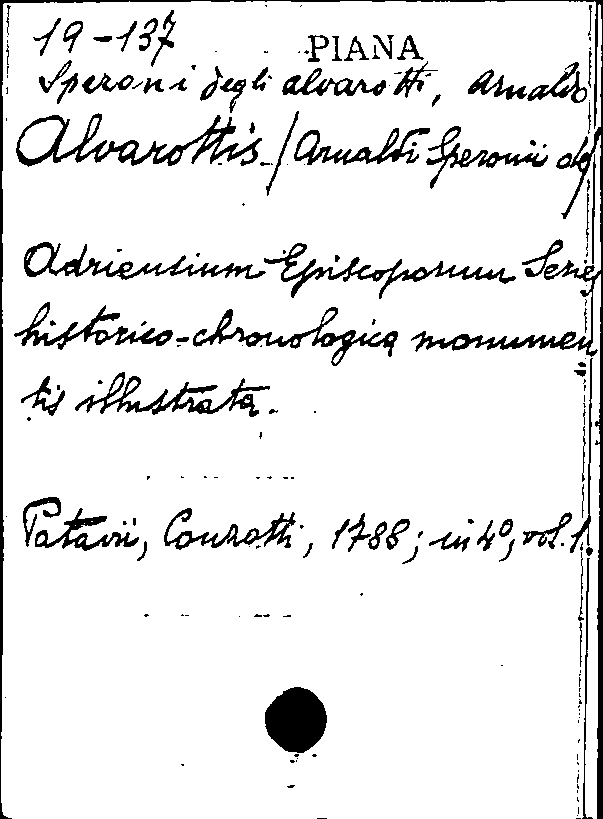 19-137
PIANA
Speroni degli alvarotti, Arnaldo
Alvarottis / Arnaldi Speronii de
Adriensium Episcoporum Series
historico-chronologica monumen
tis illustrata.
Patavii, Conzatti, 1788; in 4º, vol. 1.